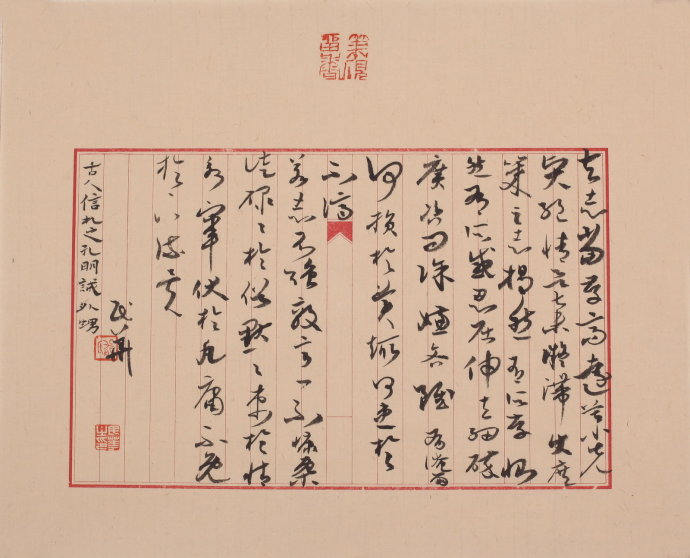 夫志當存高遠慕先
賢絕情欲棄凝滯使庶
幾之志揭然有所存惻
然有所感忍屈伸去細碎
廣咨問除嫌吝雖有淹留
何損於美趣何患於
不濟
若志不強毅意不慷慨
徒碌々於俗默々束於情
永竄伏於凡庸不免
於下流矣
古人信札之孔明誡外甥
民華